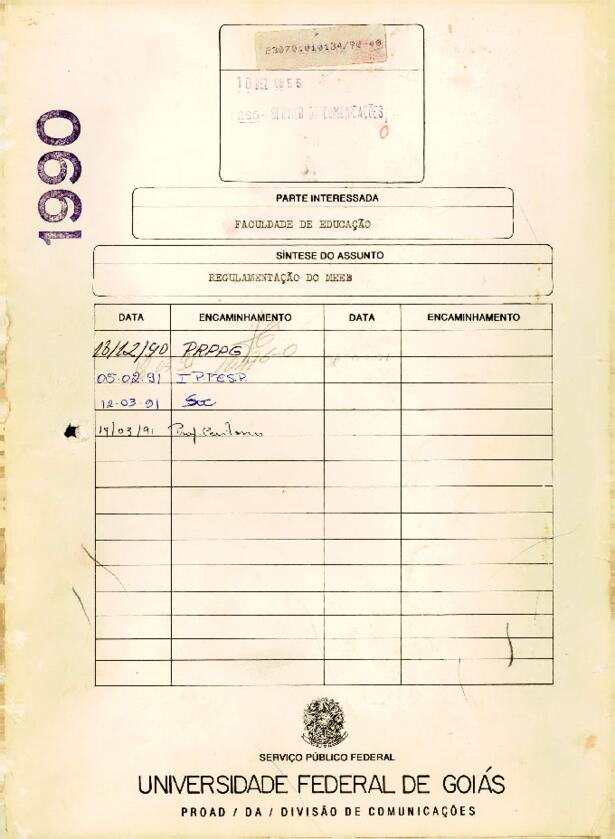 23070.010134/90-08
10 DEZ 0855
- SERVIÇO DE COMUNICAÇÕES
1990
PARTE INTERESSADA
FACULDADE DE EDUCAÇÃO
SÍNTESE DO ASSUNTO
REGULAMENTAÇÃO DO MEEB
DATA ENCAMINHAMENTO DATA ENCAMINHAMENTO
13/12/90 PRPPG
05.02.91 IPTESP.
12-03-91 Soc
14/03/91 Prof.
SERVIÇO PÚBLICO FEDERAL
UNIVERSIDADE FEDERAL DE GOIÁS
PROAD / DA / DIVISÃO DE COMUNICAÇÕES